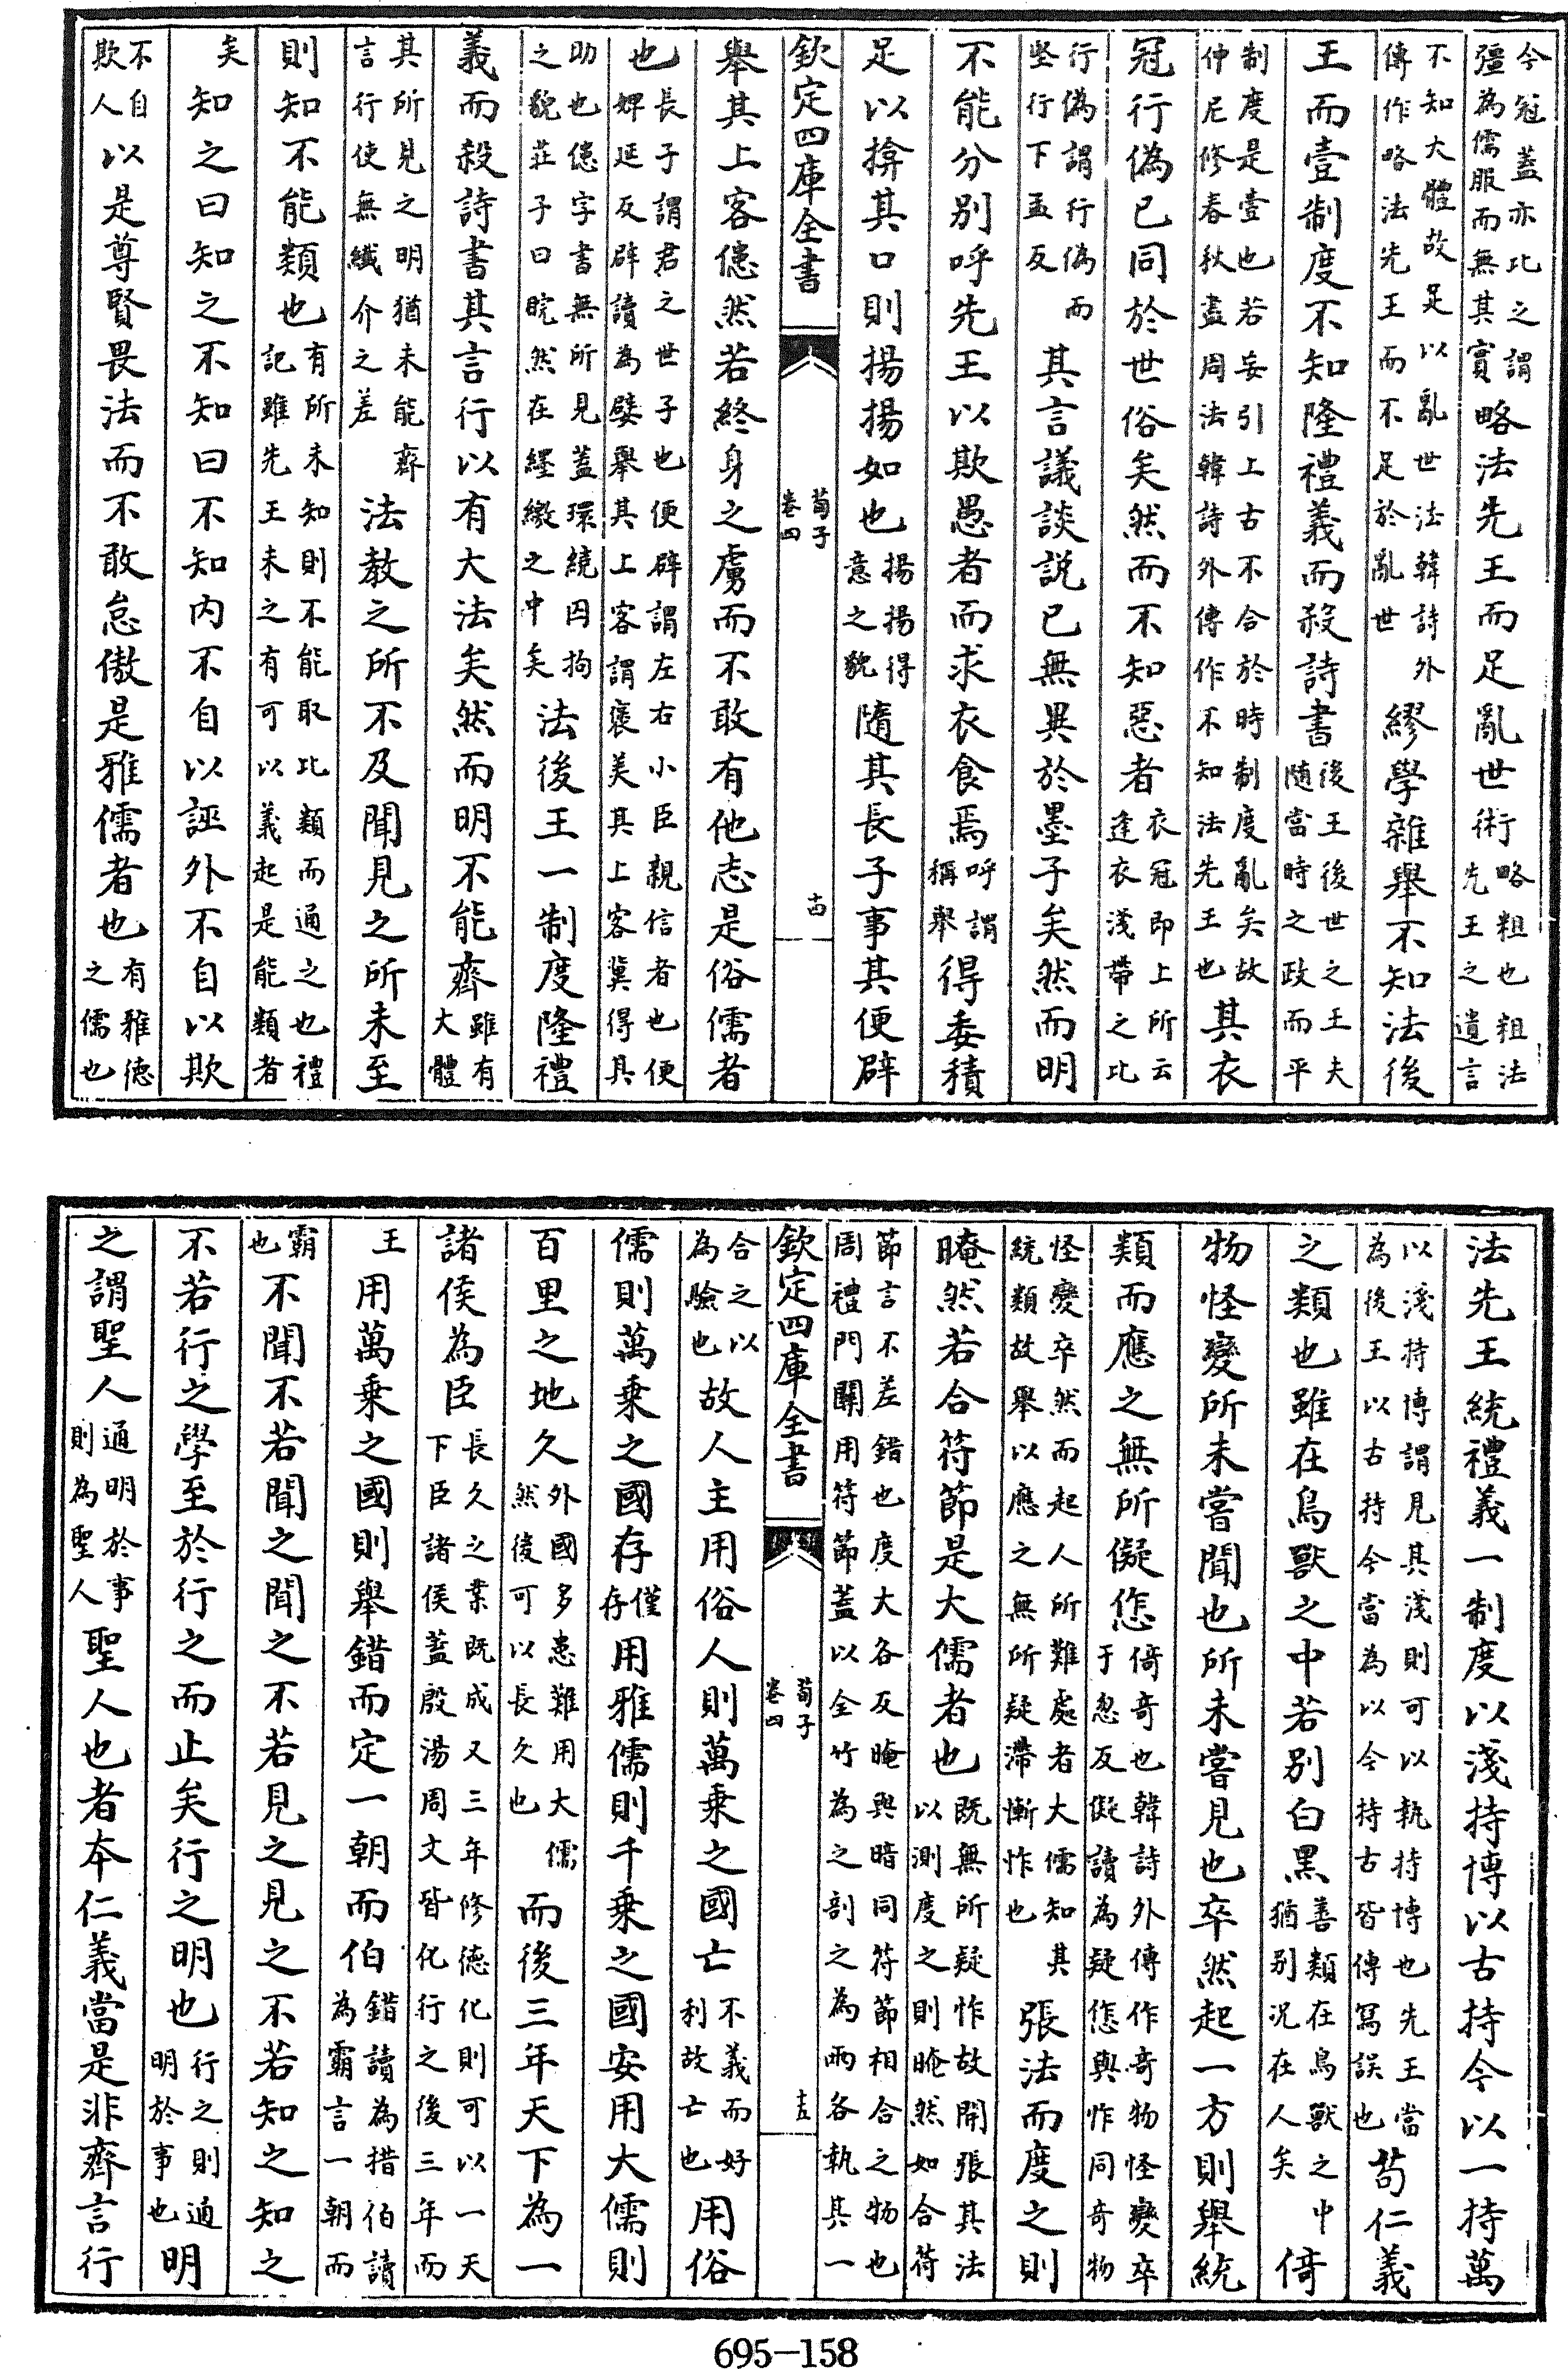 今冠蓋亦比之謂彊為儒服而無其實略法先王而足亂世術略粗也粗法先王之遺言
不知大體故足以亂世法韓詩外傳作略法先王而不足於亂世繆學雜舉不知法後
王而壹制度不知隆禮義而殺詩書後王後世之王夫隨當時之政而平
制度是壹也若妄引上古不合於時制度亂矣故仲尼修春秋盡周法韓詩外傳作不知法先王也其衣
冠行偽已同於世俗矣然而不知惡者衣冠即上所云逢衣淺帶之比
行偽謂行偽而堅行下孟反其言議談説已無異於墨子矣然而明
不能分别呼先王以欺愚者而求衣食焉呼謂稱舉得委積
足以揜其口則揚揚如也揚揚得意之貌隨其長子事其便辟
欽定四庫全書 荀子卷四 十四
舉其上客僡然若終身之虜而不敢有他志是俗儒者
也長子謂君之世子也便辟謂左右小臣親信者也便婢延反辟讀為嬖舉其上客謂褒美其上客冀得其
助也僡字書無所見蓋環繞囚拘之貌莊子曰睆然在纆繳之中矣法後王一制度隆禮
義而殺詩書其言行以有大法矣然而明不能齊雖有大體
其所見之明猶未能齊言行使無纎介之差法教之所不及聞見之所未至
則知不能類也有所未知則不能取比類而通之也禮記雖先王未之有可以義起是能類者
矣知之曰知之不知曰不知内不自以誣外不自以欺
不自欺人以是尊賢畏法而不敢怠傲是雅儒者也有雅徳之儒也
法先王統禮義一制度以淺持博以古持今以一持萬
以淺持博謂見其淺則可以執持博也先王當為後王以古持今當為以今持古皆傳寫誤也苟仁義
之類也雖在鳥獸之中若别白黑善類在鳥獸之中猶别況在人矣倚
物怪變所未嘗聞也所未嘗見也卒然起一方則舉統
類而應之無所儗㤰倚奇也韓詩外傳作奇物怪變卒于忽反儗讀為疑㤰與怍同奇物
怪變卒然而起人所難處者大儒知其統類故舉以應之無所疑滯慚怍也張法而度之則
晻然若合符節是大儒者也既無所疑怍故開張其法以測度之則晻然如合符
節言不差錯也度大各反晻與暗同符節相合之物也周禮門關用符節蓋以全竹為之剖之為兩各執其一
欽定四庫全書 荀子卷四 十五
合之以為驗也故人主用俗人則萬乗之國亡不義而好利故亡也用俗
儒則萬乗之國存僅存用雅儒則千乗之國安用大儒則
百里之地久外國多患難用大儒然後可以長久也而後三年天下為一
諸侯為臣長久之業既成又三年修徳化則可以一天下臣諸侯蓋殷湯周文皆化行之後三年而
王用萬乗之國則舉錯而定一朝而伯錯讀為措伯讀為霸言一朝而
霸也不聞不若聞之聞之不若見之見之不若知之知之
不若行之學至於行之而止矣行之明也行之則通明於事也明
之謂聖人通明於事則為聖人聖人也者本仁義當是非齊言行
695-158